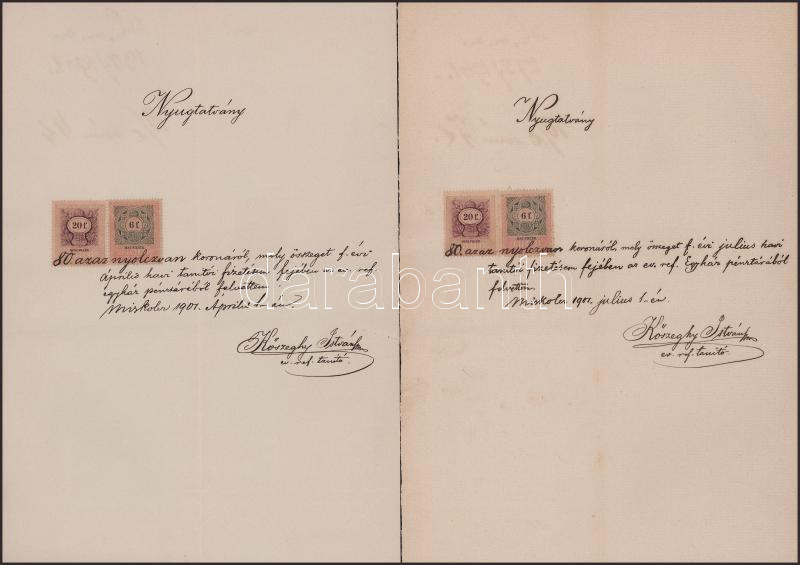 Nyugtatvány
20 f.
6 f.
80. azaz nyolczvan koronáról, mely összeget f. évi
Április havi tanitói fizetésem fejében az ev. ref.
egyház pénztárából felvettem
Miskolcz 1901. Április 1-én.
Kőszeghy István
ev. ref. tanitó.
Nyugtatvány
20 f.
6 f.
80. azaz nyolczvan koronáról, mely összeget f. évi julius havi
tanitói fizetésem fejében az ev. ref. Egyház pénztárából
felvettem
Miskolcz 1901. julius 1-én.
Kőszeghy István
ev. ref. tanitó.
darabanth